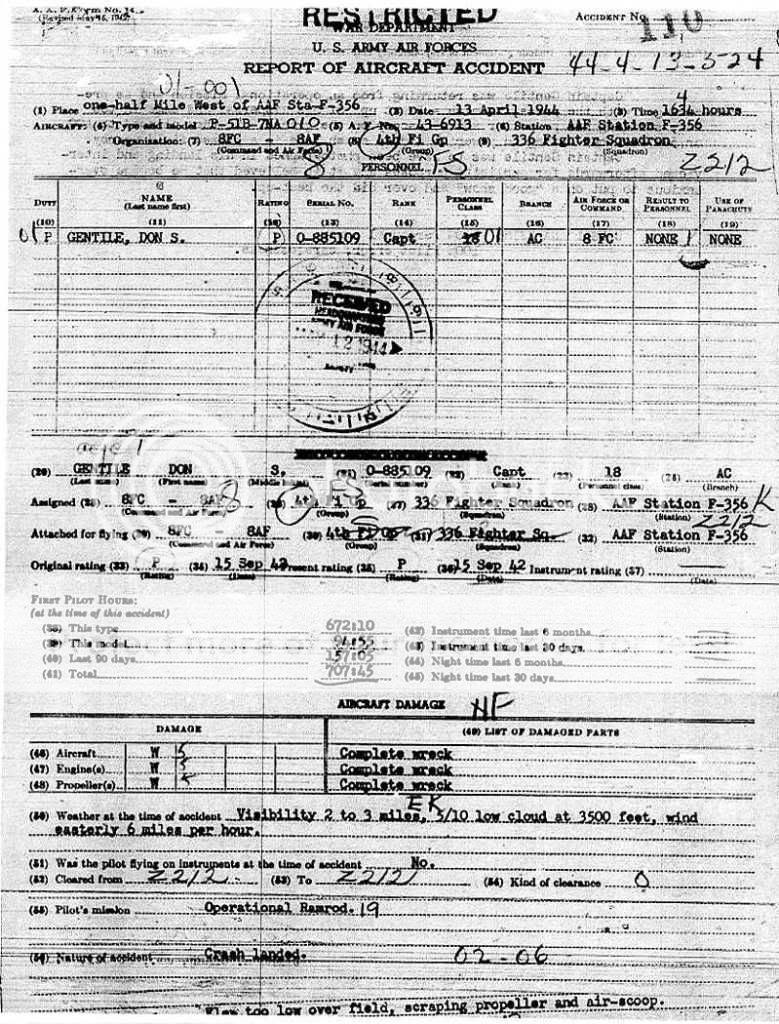 A. A. F. Form No. 14
(Revised May 15, 1942)
RESTRICTED
ACCIDENT No. 110
WAR DEPARTMENT
U. S. ARMY AIR FORCES
REPORT OF AIRCRAFT ACCIDENT 44-4-13-524
01-001
(1) Place one-half Mile West of AAF Sta-F-356 (2) Date 13 April 1944 (3) Time 1634 hours
4
AIRCRAFT: (4) Type and model P-51B-7NA 010 (5) A. F. No. 43-6913 (6) Station AAF Station F-356
Organization: (7) 8FC 8AF (8) 4th Fi Gp (9) 336 Fighter Squadron
(Command and Air Force) (Group) (Squadron)
8 FS Z212
PERSONNEL
DUTY NAME (Last name first) RATING SERIAL No. RANK PERSONNEL CLASS BRANCH AIR FORCE OR COMMAND RESULT TO PERSONNEL USE OF PARACHUTE
(10) (11) (12) (13) (14) (15) (16) (17) (18) (19)
01 P GENTILE, DON S. P 0-885109 Capt 18 01 AC 8 FC NONE 1 NONE
RECEIVED
HEADQUARTERS
ARMY AIR FORCE
12 1944
(20) GENTILE DON S. (21) 0-885109 (22) Capt (23) 18 (24) AC
(Last name) (First name) (Middle initial) (Serial number) (Rank) (Personnel class) (Branch)
Assigned (25) 8FC - 8AF 8 (26) 4th Fi Gp (27) 336 Fighter Squadron (28) AAF Station F-356 K
(Command and Air Force) (Group) (Squadron) (Station)
Z212
Attached for flying (29) 8FC - 8AF (30) 4th Fi Gp (31) 336 Fighter Sq. (32) AAF Station F-356
(Command and Air Force) (Group) (Squadron) (Station)
Original rating (33) P (34) 15 Sep 42 Present rating (35) P (36) 15 Sep 42 Instrument rating (37)
(Rating) (Date) (Rating) (Date) (Date)
FIRST PILOT HOURS:
(at the time of this accident)
(38) This type 672:10 (42) Instrument time last 6 months
(39) This model 91:55 (43) Instrument time last 30 days
(40) Last 90 days 157:05 (44) Night time last 6 months
(41) Total 707:45 (45) Night time last 30 days
AIRCRAFT DAMAGE NF
DAMAGE (49) LIST OF DAMAGED PARTS
(46) Aircraft W 5 Complete wreck
(47) Engine(s) W 5 Complete wreck
(48) Propeller(s) W 5 Complete wreck
EK
(50) Weather at the time of accident Visibility 2 to 3 miles, 5/10 low cloud at 3500 feet, wind
easterly 6 miles per hour.
(51) Was the pilot flying on instruments at the time of accident No.
(52) Cleared from Z212 (53) To Z212 (54) Kind of clearance 0
(55) Pilot's mission Operational Ramrod. 19
(56) Nature of accident Crash landed. 02-06
too low over field, scraping propeller and air-scoop.